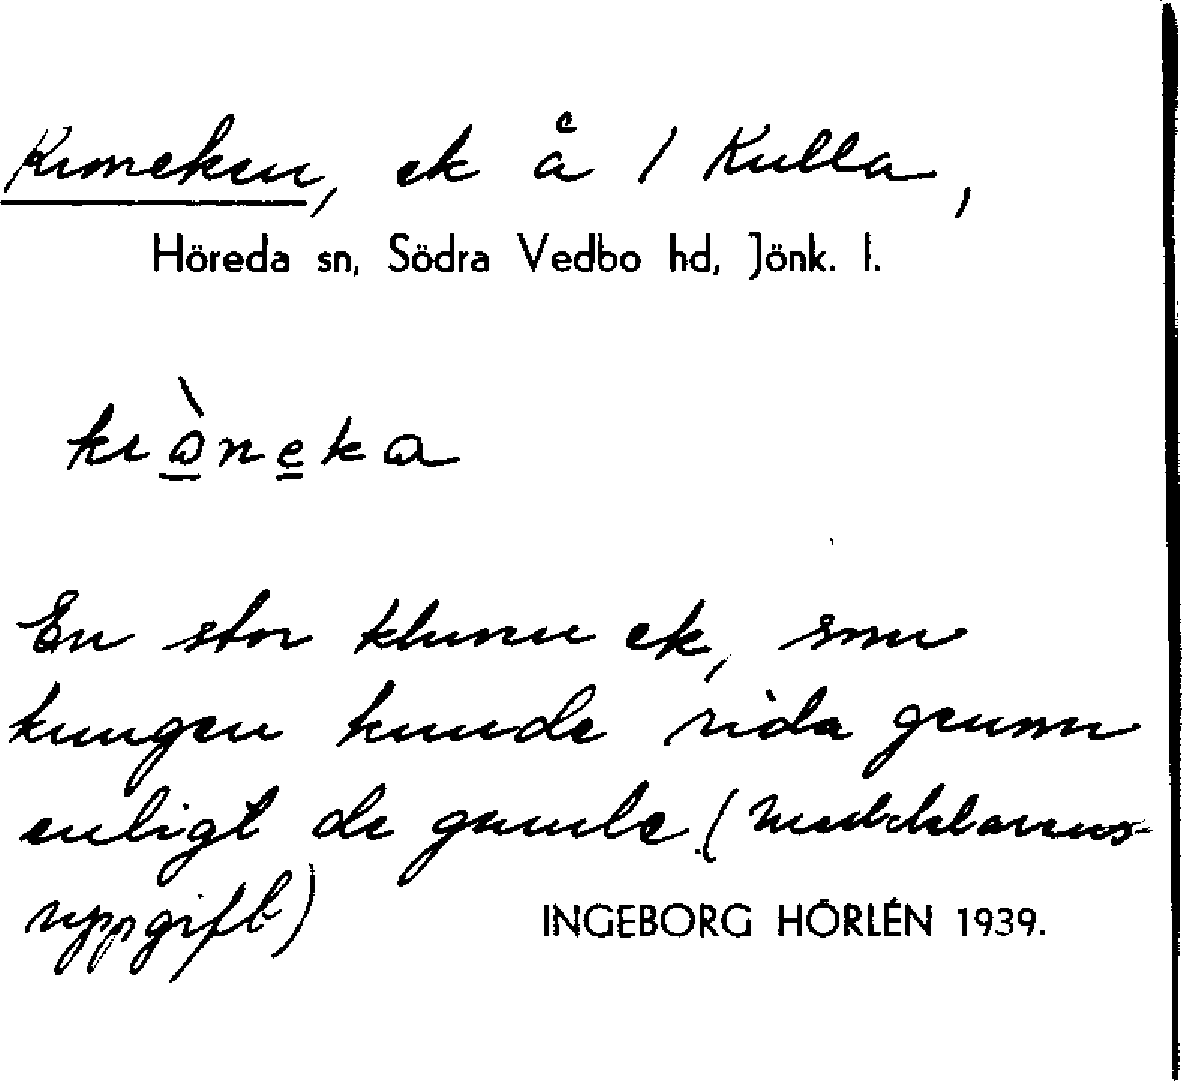 Kroneken, ek å 1 Kulla,
Höreda sn, Södra Vedbo hd, Jönk. l.
kròneka
En stor kluven ek, som
kungen kunde rida genom
enligt de gamle. (Meddelarens-
uppgift)
INGEBORG HÖRLÉN 1939.